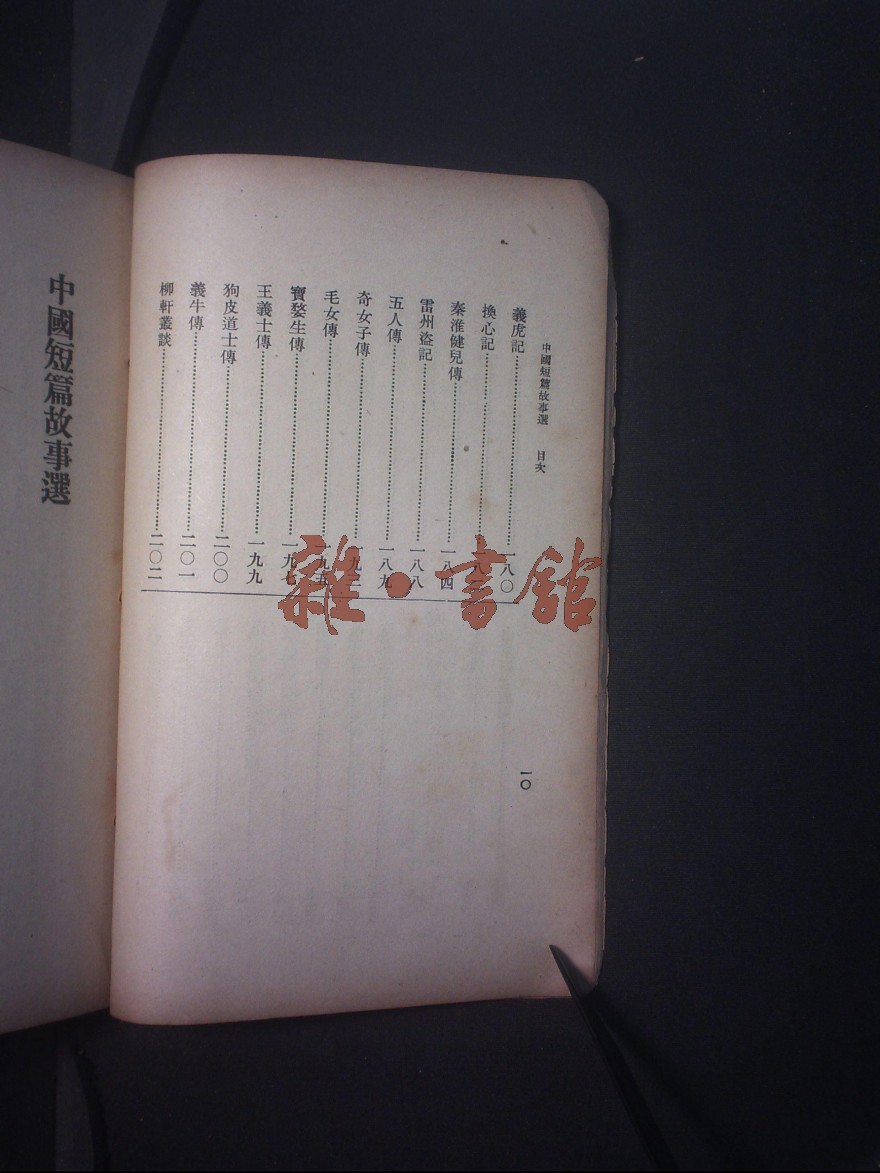 中國短篇故事選 目次
義虎記……一八〇
換心記……一八
秦淮健兒傳……一八四
雷州盜記……一八八
五人傳……一八九
奇女子傳……一九三
毛女傳……一九五
寶婺生傳……一九七
王義士傳……一九九
狗皮道士傳……二〇〇
義牛傳……二〇一
柳軒叢談……二〇二
一〇
中國短篇故事選
雜·書館